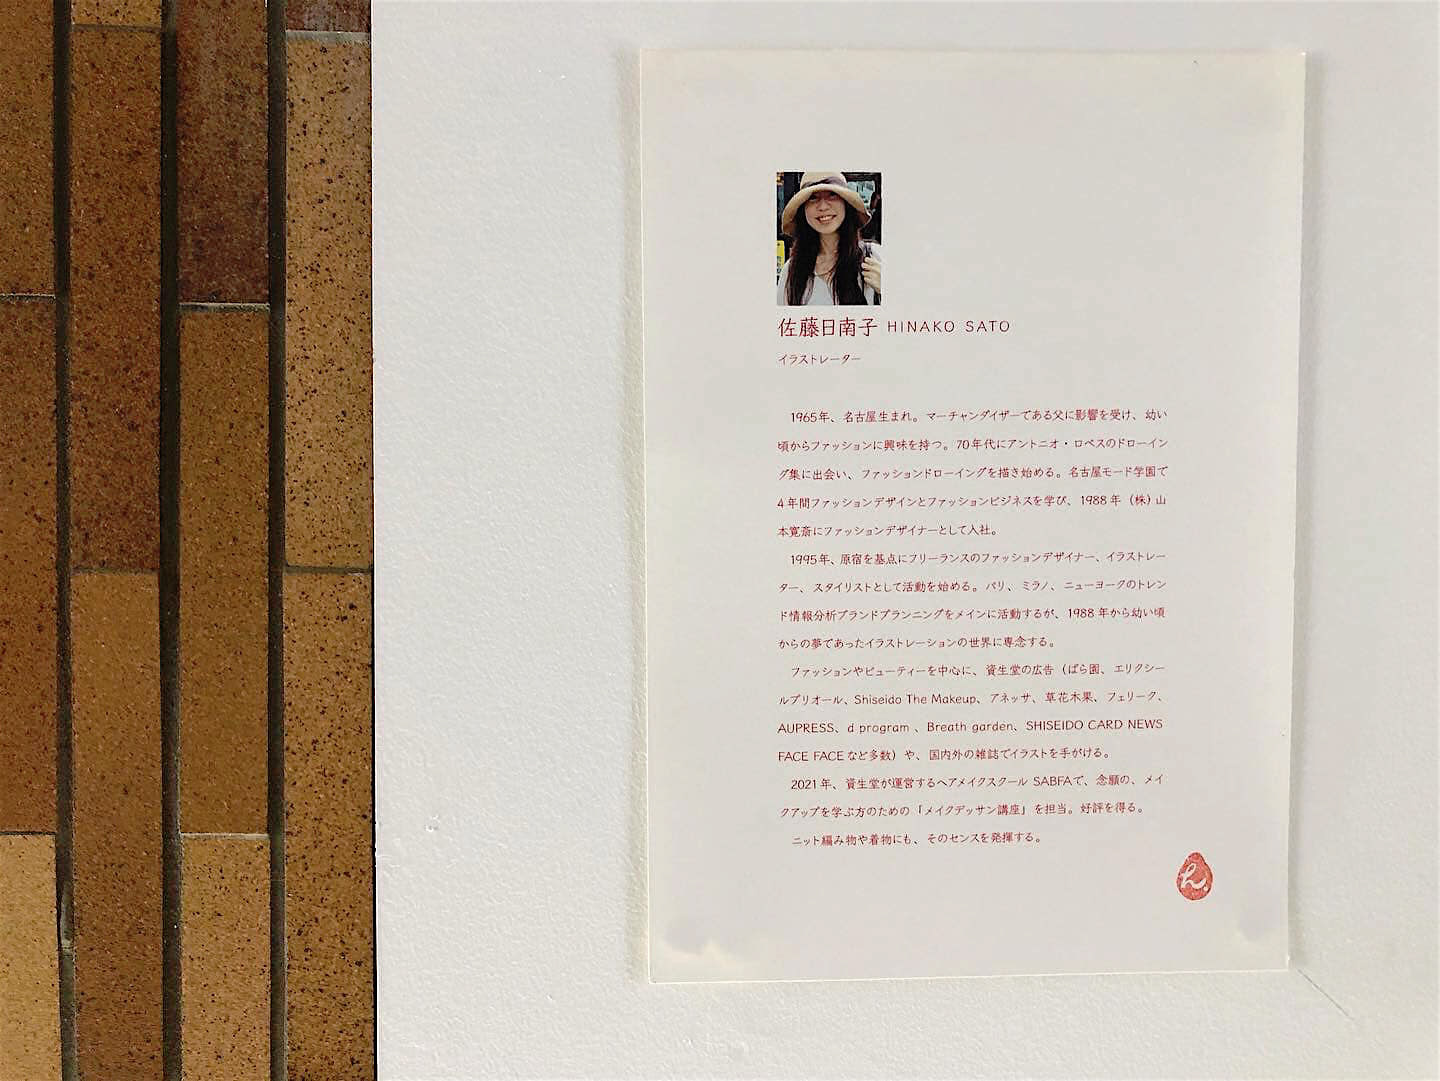 佐藤日南子 HINAKO SATO
イラストレーター
1965年、名古屋生まれ。マーチャンダイザーである父に影響を受け、幼い
頃からファッションに興味を持つ。70年代にアントニオ・ロペスのドローイン
グ集に出会い、ファッションドローイングを描き始める。名古屋モード学園で
4年間ファッションデザインとファッションビジネスを学び、1988年（株）山
本寛斎にファッションデザイナーとして入社。
1995年、原宿を基点にフリーランスのファッションデザイナー、イラストレー
ター、スタイリストとして活動を始める。パリ、ミラノ、ニューヨークのトレン
ド情報分析ブランドプランニングをメインに活動するが、1988年から幼い頃
からの夢であったイラストレーションの世界に専念する。
ファッションやビューティーを中心に、資生堂の広告（ばら園、エリクシー
ルプリオール、Shiseido The Makeup、アネッサ、草花木果、フェリーク、
AUPRESS、d program 、Breath garden、SHISEIDO CARD NEWS
FACE FACEなど多数）や、国内外の雑誌でイラストを手がける。
2021年、資生堂が運営するヘアメイクスクール SABFAで、念願の、メイ
クアップを学ぶ方のための「メイクデッサン講座」を担当。好評を得る。
ニット編み物や着物にも、そのセンスを発揮する。
h.